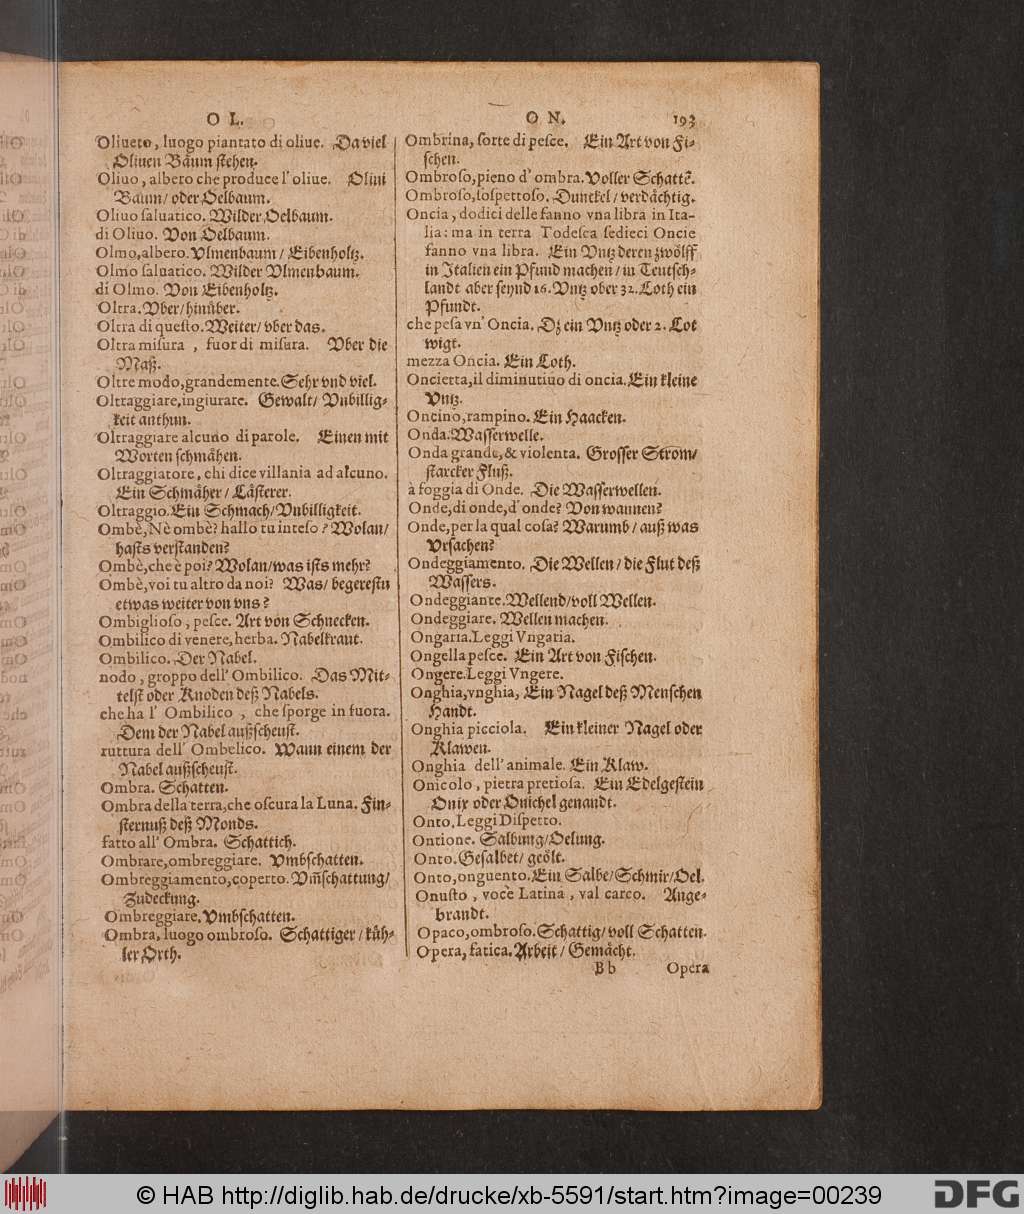 O L.
Oliueto, luogo piantato di oliue. Da viel
Oliuen Bäum stehen.
Oliuo, albero che produce l'oliue. Olini
Baum/ oder Oelbaum.
Oliuo saluatico. Wilder Oelbaum.
di Oliuo. Von Oelbaum.
Olmo, albero. Vlmenbaum/ Eibenholtz.
Olmo saluatico. Wilder Vlmenbaum.
di Olmo. Von Eibenholtz.
Oltra. Vber/ hinüber.
Oltra di questo. Weiter/ vber das.
Oltra misura, fuor di misura. Vber die
Maß.
Oltre modo, grandemente. Sehr vnd viel.
Oltraggiare, ingiurate. Gewalt/ Vnbillig-
keit anthun.
Oltraggiare alcuno di parole. Einen mit
Worten schmähen.
Oltraggiatore, chi dice villania ad alcuno.
Ein Schmäher/ Lästerer.
Oltraggio. Ein Schmach/ Vnbilligkeit.
Ombè, Nè ombè? hallo tu inteso? Wolan/
hasts verstanden?
Ombè, che è poi? Wolan/ was ists mehr?
Ombè, voi tu altro da noi? Was/ begerestu
etwas weiter von vns?
Ombiglioso, pesce. Art von Schnecken.
Ombilico di venere, herba. Nabelkraut.
Ombilico. Der Nabel.
nodo, groppo dell' Ombilico. Das Mit-
telst oder Knoden deß Nabels.
che ha l' Ombilico, che sporge in fuora.
Dem der Nabel außscheust.
ruttura dell' Ombelico. Wann einem der
Nabel außscheust.
Ombra. Schatten.
Ombra della terra, che oscura la Luna. Fin-
sternuß deß Monds.
fatto all' Ombra. Schattich.
Ombrare, ombreggiare. Vmbschatten.
Ombreggiamento, coperto. Vm̃schattung/
Zudeckung.
Ombreggiare. Vmbschatten.
Ombra, luogo ombroso. Schattiger/ küh-
ler Orth.
O N. 193
Ombrina, sorte di pesce. Ein Art von Fi-
schen.
Ombroso, pieno d' ombra. Voller Schattẽ.
Ombroso, sospettoso. Dunckel/ verdächtig.
Oncia, dodici delle fanno vna libra in Ita-
lia: ma in terra Todesca sedieci Oncie
fanno vna libra. Ein Vntz deren zwölff
in Italien ein Pfund machen/ in Teutsch-
landt aber seynd 16. Vntz ober 32. Loth ein
Pfundt.
che pesa vn' Oncia. Dz ein Vntz oder 2. Lot
wigt.
mezza Oncia. Ein Loth.
Oncietta, il diminutiuo di oncia. Ein kleine
Vntz.
Oncino, rampino. Ein Haacken.
Onda. Wasserwelle.
Onda grande, & violenta. Grosser Strom/
starcker Fluß.
à foggia di Onde. Die Wasserwellen.
Onde, di onde, d' onde? Von wannen?
Onde, per la qual cosa? Warumb/ auß was
Vrsachen?
Ondeggiamento. Die Wellen/ die Flut deß
Wassers.
Ondeggiante. Wellend/ voll Wellen.
Ondeggiare. Wellen machen.
Ongaria. Leggi Vngaria.
Ongella pesce. Ein Art von Fischen.
Ongere. Leggi Vngere.
Onghia, vnghia, Ein Nagel deß Menschen
Handt.
Onghia picciola. Ein kleiner Nagel oder
Klawen.
Onghia dell' animale. Ein Klaw.
Onicolo, pietra pretiosa. Ein Edelgestein
Onix oder Onichel genandt.
Onto, Leggi Dispetto.
Ontione. Salbung/ Oelung.
Onto. Gesalbet/ geölt.
Onto, onguento. Ein Salbe/ Schmir/ Oel.
Onusto, voce Latina, val carco. Ange-
brandt.
Opaco, ombroso. Schattig/ voll Schatten.
Opera, fatica. Arbeit/ Gemächt.
B b Opera
© HAB http://diglib.hab.de/drucke/xb-5591/start.htm?image=00239
DFG